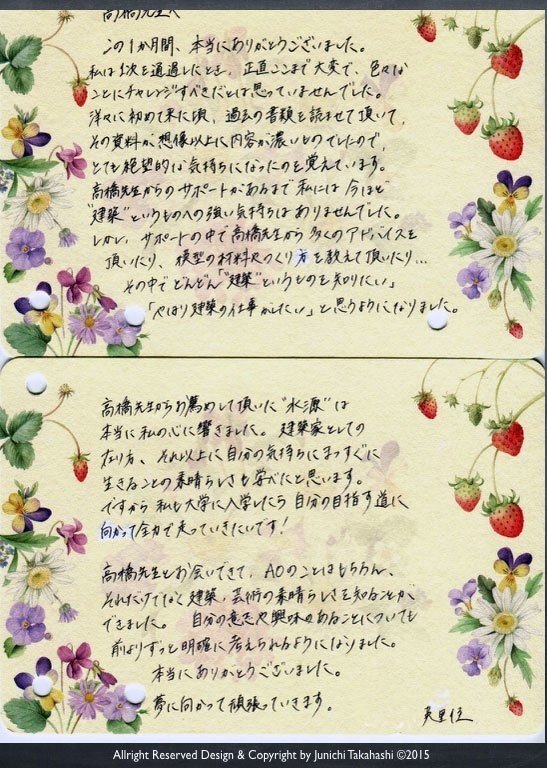 高橋先生へ
この1か月間、本当にありがとうございました。
私は1次を通過したとき、正直ここまで大変で、色々な
ことにチャレンジすべきだとは思っていませんでした。
洋々に初めて来た頃、過去の書類を読ませて頂いて、
その資料が想像以上に内容が濃いものでしたので、
とても絶望的な気持ちになったのを覚えています。
高橋先生からのサポートがあるまで私には今ほど
"建築"というものへの強い気持ちはありませんでした。
しかし、サポートの中で高橋先生から多くのアドバイスを
頂いたり、模型の材料やつくり方を教えて頂いたり…
その中でどんどん「"建築"というものを知りたい」
「やはり建築の仕事がしたい」と思うようになりました。
高橋先生からお薦めして頂いた"水源"は
本当に私の心に響きました。建築家としての
在り方、それ以上に自分の気持ちにまっすぐに
生きることの素晴らしさも学べたと思います。
ですから私も大学に入学したら自分の目指す道に
向かって全力で走っていきたいです!
高橋先生とお会いできて、AOのことはもちろん、
それだけでなく建築・芸術の素晴らしさを知ることが
できました。自分の意志や興味のあることについても
前よりずっと明確に考えられるようになりました。
本当にありがとうございました。
夢に向かって頑張っていきます。
Allright Reserved Design & Copyright by Junichi Takahashi ©2015